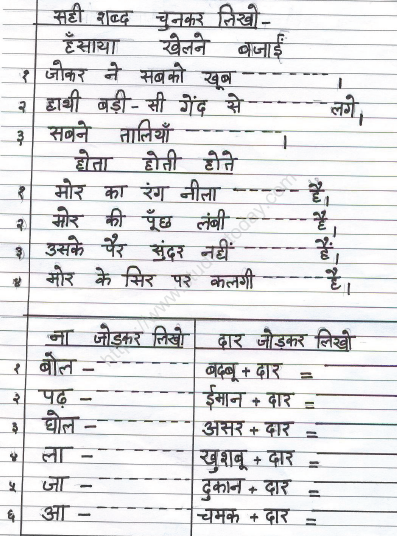 सही शब्द चुनकर लिखो-
हँसाया खेलने बजाईं
१ जोकर ने सबको खूब ---------- ।
२ हाथी बड़ी-सी गेंद से -------- लगे।
३ सबने तालियाँ ---------- ।
होता होती होते
१ मोर का रंग नीला -------- है।
२ मोर की पूँछ लंबी -------- है।
३ उसके पैर सुंदर नहीं -------- हैं।
४ मोर के सिर पर कलगी -------- है।
ना जोड़कर लिखो दार जोड़कर लिखो
१ बोल - ---------- बदबू + दार = ----------
२ पढ़ - ---------- ईमान + दार = ----------
३ घोल - ---------- असर + दार = ----------
४ ला - ---------- खुशबू + दार = ----------
५ जा - ---------- दुकान + दार = ----------
६ आ - ---------- चमक + दार = ----------